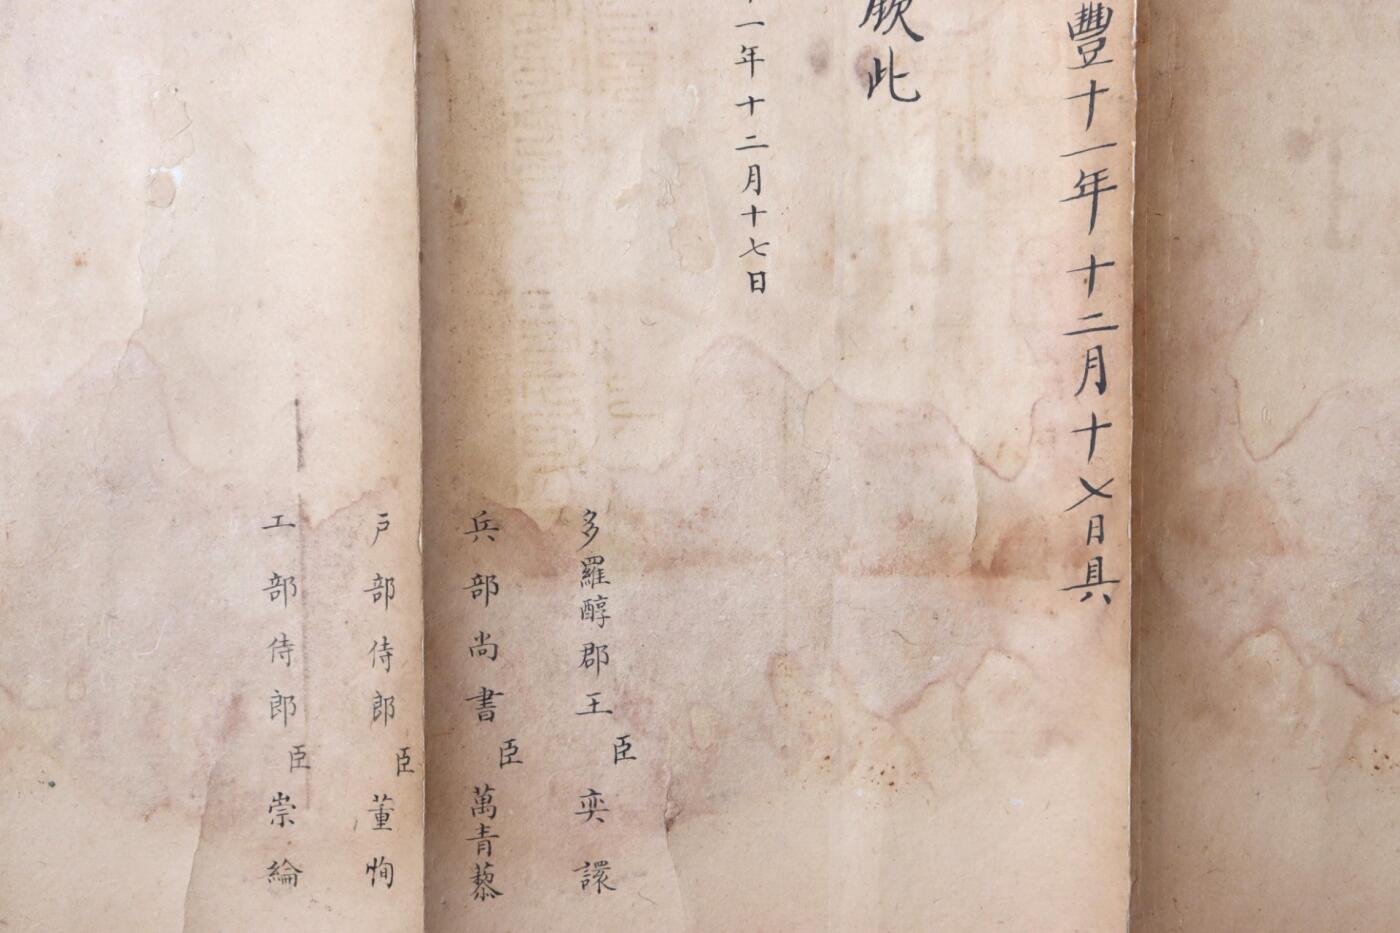 豐十一年十二月十七日具
欽此
一年十二月十七日
多羅醇郡王臣奕譞
兵部尚書臣萬青藜
戶部侍郎臣董恂
工部侍郎臣崇綸